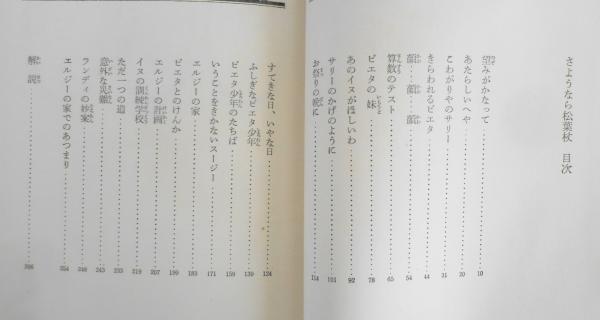 さようなら松葉杖　目次
望みがかなって 10
あたらしいへや 20
こわがりやのサリー 31
きらわれるピエタ 44
顔…顔…顔 54
算数のテスト 65
ピエタの妹 78
あのイヌがほしいわ 92
サリーのかげのように 101
お祭りの夜に 114
すてきな日、いやな日 124
ふしぎなピエタ少年 139
ピエタ少年のたちば 159
いうことをきかないスージー 171
エルジーの家 183
ピエタとのけんか 199
エルジーの計画 207
イヌの訓練学校 219
ただ一つの道 233
意外な災難 243
ランディの妙案 248
エルジーの家でのあつまり 254
解説